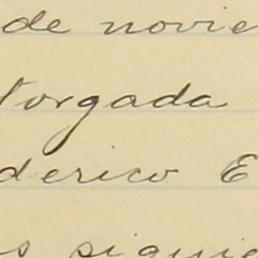 de novie
torgada
derico E
s siguie